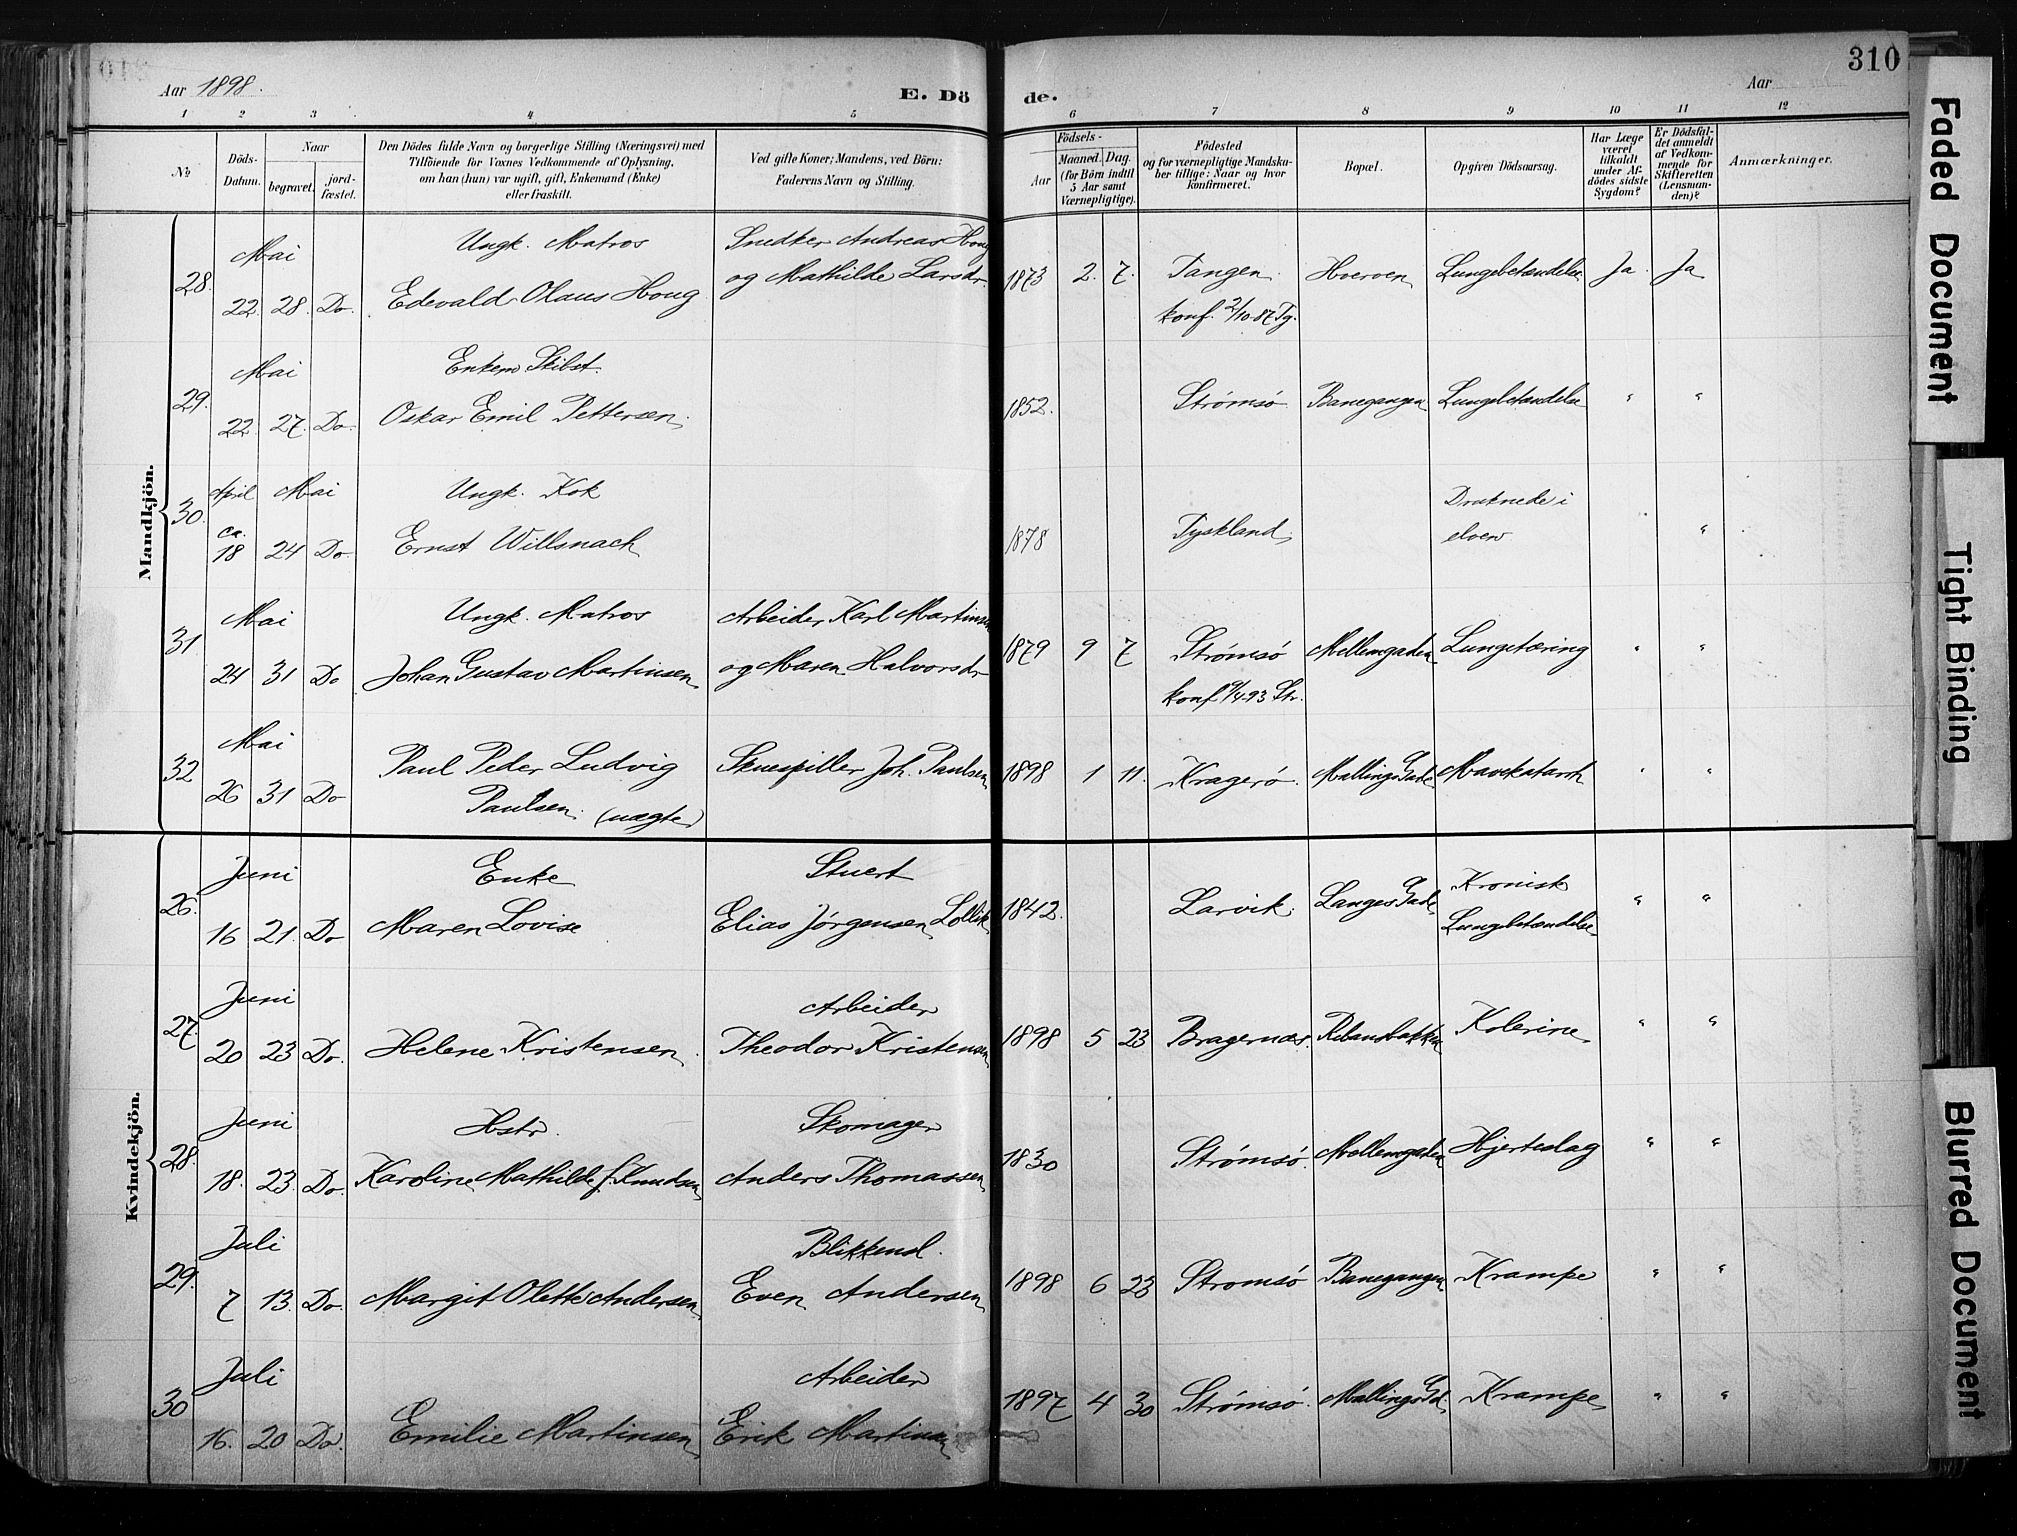 310
Aar 1898.
E. Dö de.
Aar
1 2 3 4 5 6 7 8 9 10 11 12
No
Döds-Datum.
Naar
begravet.
jord-fæstet.
Den Dödes fulde Navn og borgerlige Stilling (Næringsvei) med
Tilföiende for Voxnes Vedkommende af Oplysning,
om han (hun) var ugift, gift, Enkemand (Enke)
eller fraskilt.
Ved gifte Koner; Mandens, ved Börn:
Faderens Navn og Stilling.
Födsels-
Aar
Maaned. Dag.
(for Börn indtil
5 Aar samt
Værnepligtige).
Födested
og for værnepligtige Mandska-
ber tillige: Naar og hvor
konfirmeret.
Bopæl.
Opgiven Dödsaarsag.
Har Læge
været
tilkaldt
under Af-
dödes sidste
Sygdom?
Er Dödsfal-
det anmeldt
af Vedkom-
mende for
Skifteretten
(Lensman-
den)?
Anmærkninger.
Mandkjön.
Mai Ungk. Matros Snedker Andreas Houg
28. 22. 28. Do. Edevald Olaus Houg og Mathilde Larsdr. 1873 2. 7. Tangen. Hverven Lungebetændelse Ja. Ja
konf. 2/10-87 Tg.
Mai Enkem Skibst.
29. 22. 27. Do. Oskar Emil Pettersen. 1852. Strømsø Banegangen Lungebetændelse " "
April Mai Ungk. Kok Druknede i
30. ca. 18 24 Do. Ernst Willsnach 1878 Tyskland elven "
Mai Ungk. Matros Arbeider Karl Martinsen
31 24 31 Do Johan Gustav Martinsen og Maren Halvorsdr 1879 9 7 Strømsø Mellemgaden Lungetæring " "
konf 9/4-93 Str.
Mai
32 26 31 Do Paul Peder Ludvig Skuespiller Joh. Paulsen 1898 1 11. Kragerø. Mallings Gade Mavekatarrh " "
Paulsen. (uægte)
Kvindekjön.
Juni Enke Stuert Kronisk
26. 16 21. Do Maren Lovise Elias Jørgensen Lollik 1842. Larvik. Langes Gade Lungebetændelse " "
Juni Arbeider
27. 20 23 Do. Helene Kristensen Theodor Kristensen 1898 5 23 Bragernæs. Kolerine " "
Juni Hstr. Skomager
28. 18. 23. Do. Karoline Mathilde f. Knudsen Anders Thomassen 1830 Strømsø. Mellemgaden Hjerteslag " "
Juli Blikkensl.
29. 7 13. Do. Margit Olette Andersen Even Andersen 1898 6 23 Stromsø Banegangen Krampe " "
Juli Arbeider
30 16. 20 Do. Emilie Martinsen Erik Martinsen 1897 4 30 Strømsø. Mallings Gd. Krampe " "
Faded Document
Tight Binding
Blurred Document